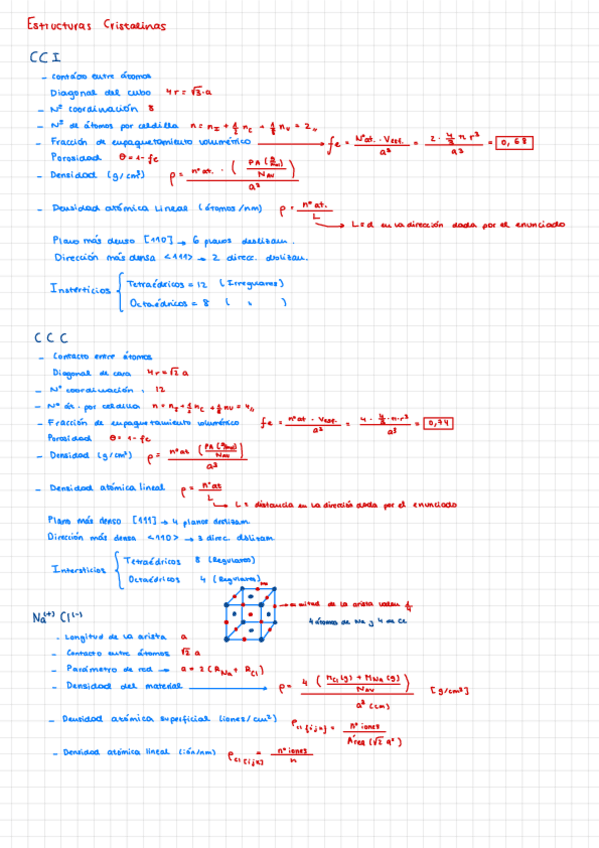 Estructuras Cristalinas
CCI
- Contacto entre átomos
Diagonal del cubo 4r = √3·a
- Nº coordinación 8
- Nº de átomos por celdilla n = n_I + 1/2 n_C + 1/8 n_V = 2,,
- Fracción de empaquetamiento volumétrico → fe = Nºat. · Vesf. / a³ = 2 · 4/3 π r³ / a³ = 0,68
Porosidad θ = 1 - fe
- Densidad (g/cm³) ρ = nº at. · (PA (g/mol) / N_AV) / a³
- Densidad atómica lineal (átomos/nm) ρ = nº at. / L
→ L = d en la dirección dada por el enunciado
Plano más denso [110] → 6 planos deslizam.
Dirección más densa <111> → 2 direcc. dslizam.
Insterticios { Tetraédricos = 12 (Irregulares)
Octaédricos = 8 ( " )
CCC
- Contacto entre átomos
Diagonal de cara 4r = √2 a
- Nº coordinación : 12
- Nº át. por celdilla n = n_I + 1/2 n_C + 1/8 n_V = 4,,
- Fracción de empaquetamiento volumétrico fe = nºat · Vesf. / a³ = 4 · 4/3 · π · r³ / a³ = 0,74
Porosidad θ = 1 - fe
- Densidad (g/cm³) ρ = nºat (PA (g/mol) / N_AV) / a³
- Densidad atómica lineal ρ = nº at / L
→ L = distancia en la dirección dada por el enunciado
Plano más denso [111] → 4 planos deslizam
Dirección más densa <110> → 3 direc. dslizam
Intersticios { Tetraédricos 8 (Regulares)
Octaédricos 4 (Regulares)
Na(+) Cl(-)
→ a mitad de la arista valen 1/4
4 átomos de Na y 4 de Cl
- Longitud de la arista a
- Contacto entre átomos √2 a
- Parámetro de red → a = 2 (R_Na + R_Cl)
- Densidad del material → ρ = 4 (M_Cl (g) + M_Na (g) / N_AV) / a³ (cm) [g/cm³]
- Densidad atómica superficial (iones/cm²) ρ_Cl {ijk} = nº iones / Área (√2 a²)
- Densidad atómica lineal (ión/nm) ρ_Cl [ijk] = nº iones / n